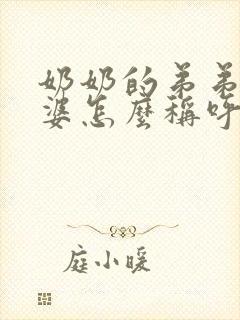 奶奶的弟弟
婆怎麼稱呼
庭小暖